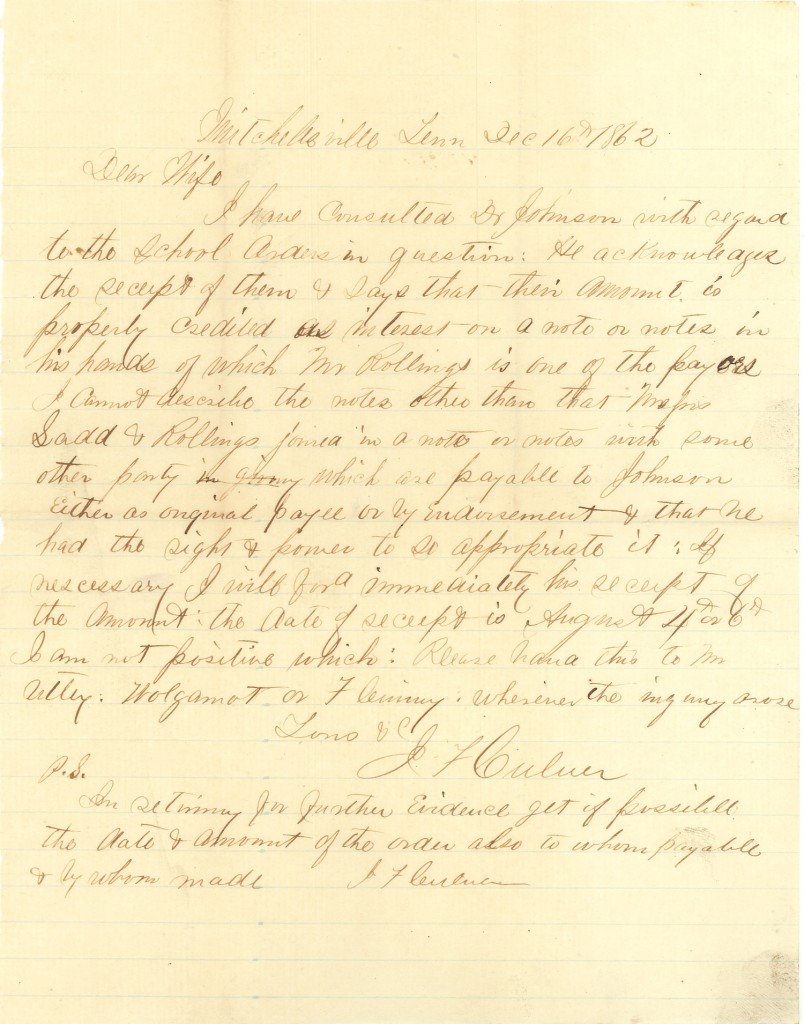 Mitchellsville Tenn Dec 16th 1862
Dear Wife
I have Consulted Dr Johnson with regard
to the School Orders in question: He acknowledges
the receipt of them & Says that their Amount is
properly Credited as interest on a note or notes in
his hands of which Mr Rollings is one of the payors
I Cannot describe the notes other than that Messrs
Ladd & Rollings joined in a note or notes with some
other party in which are payable to Johnson
Either as original payee or by indorsement & that he
had the right & power to so appropriate it: If
nescessary I will for'd immediately his receipt of
the Amount: the date of receipt is August 4th or 6th
I am not positive which: Please hand this to Mr
Utley: Wolgamot or Fleming: wherever the inquiry arose
Yours &C
J F Culver
P.S.
In returning for further Evidence get if possible
the date & amount of the order also to whom payable
& by whom made J F Culver